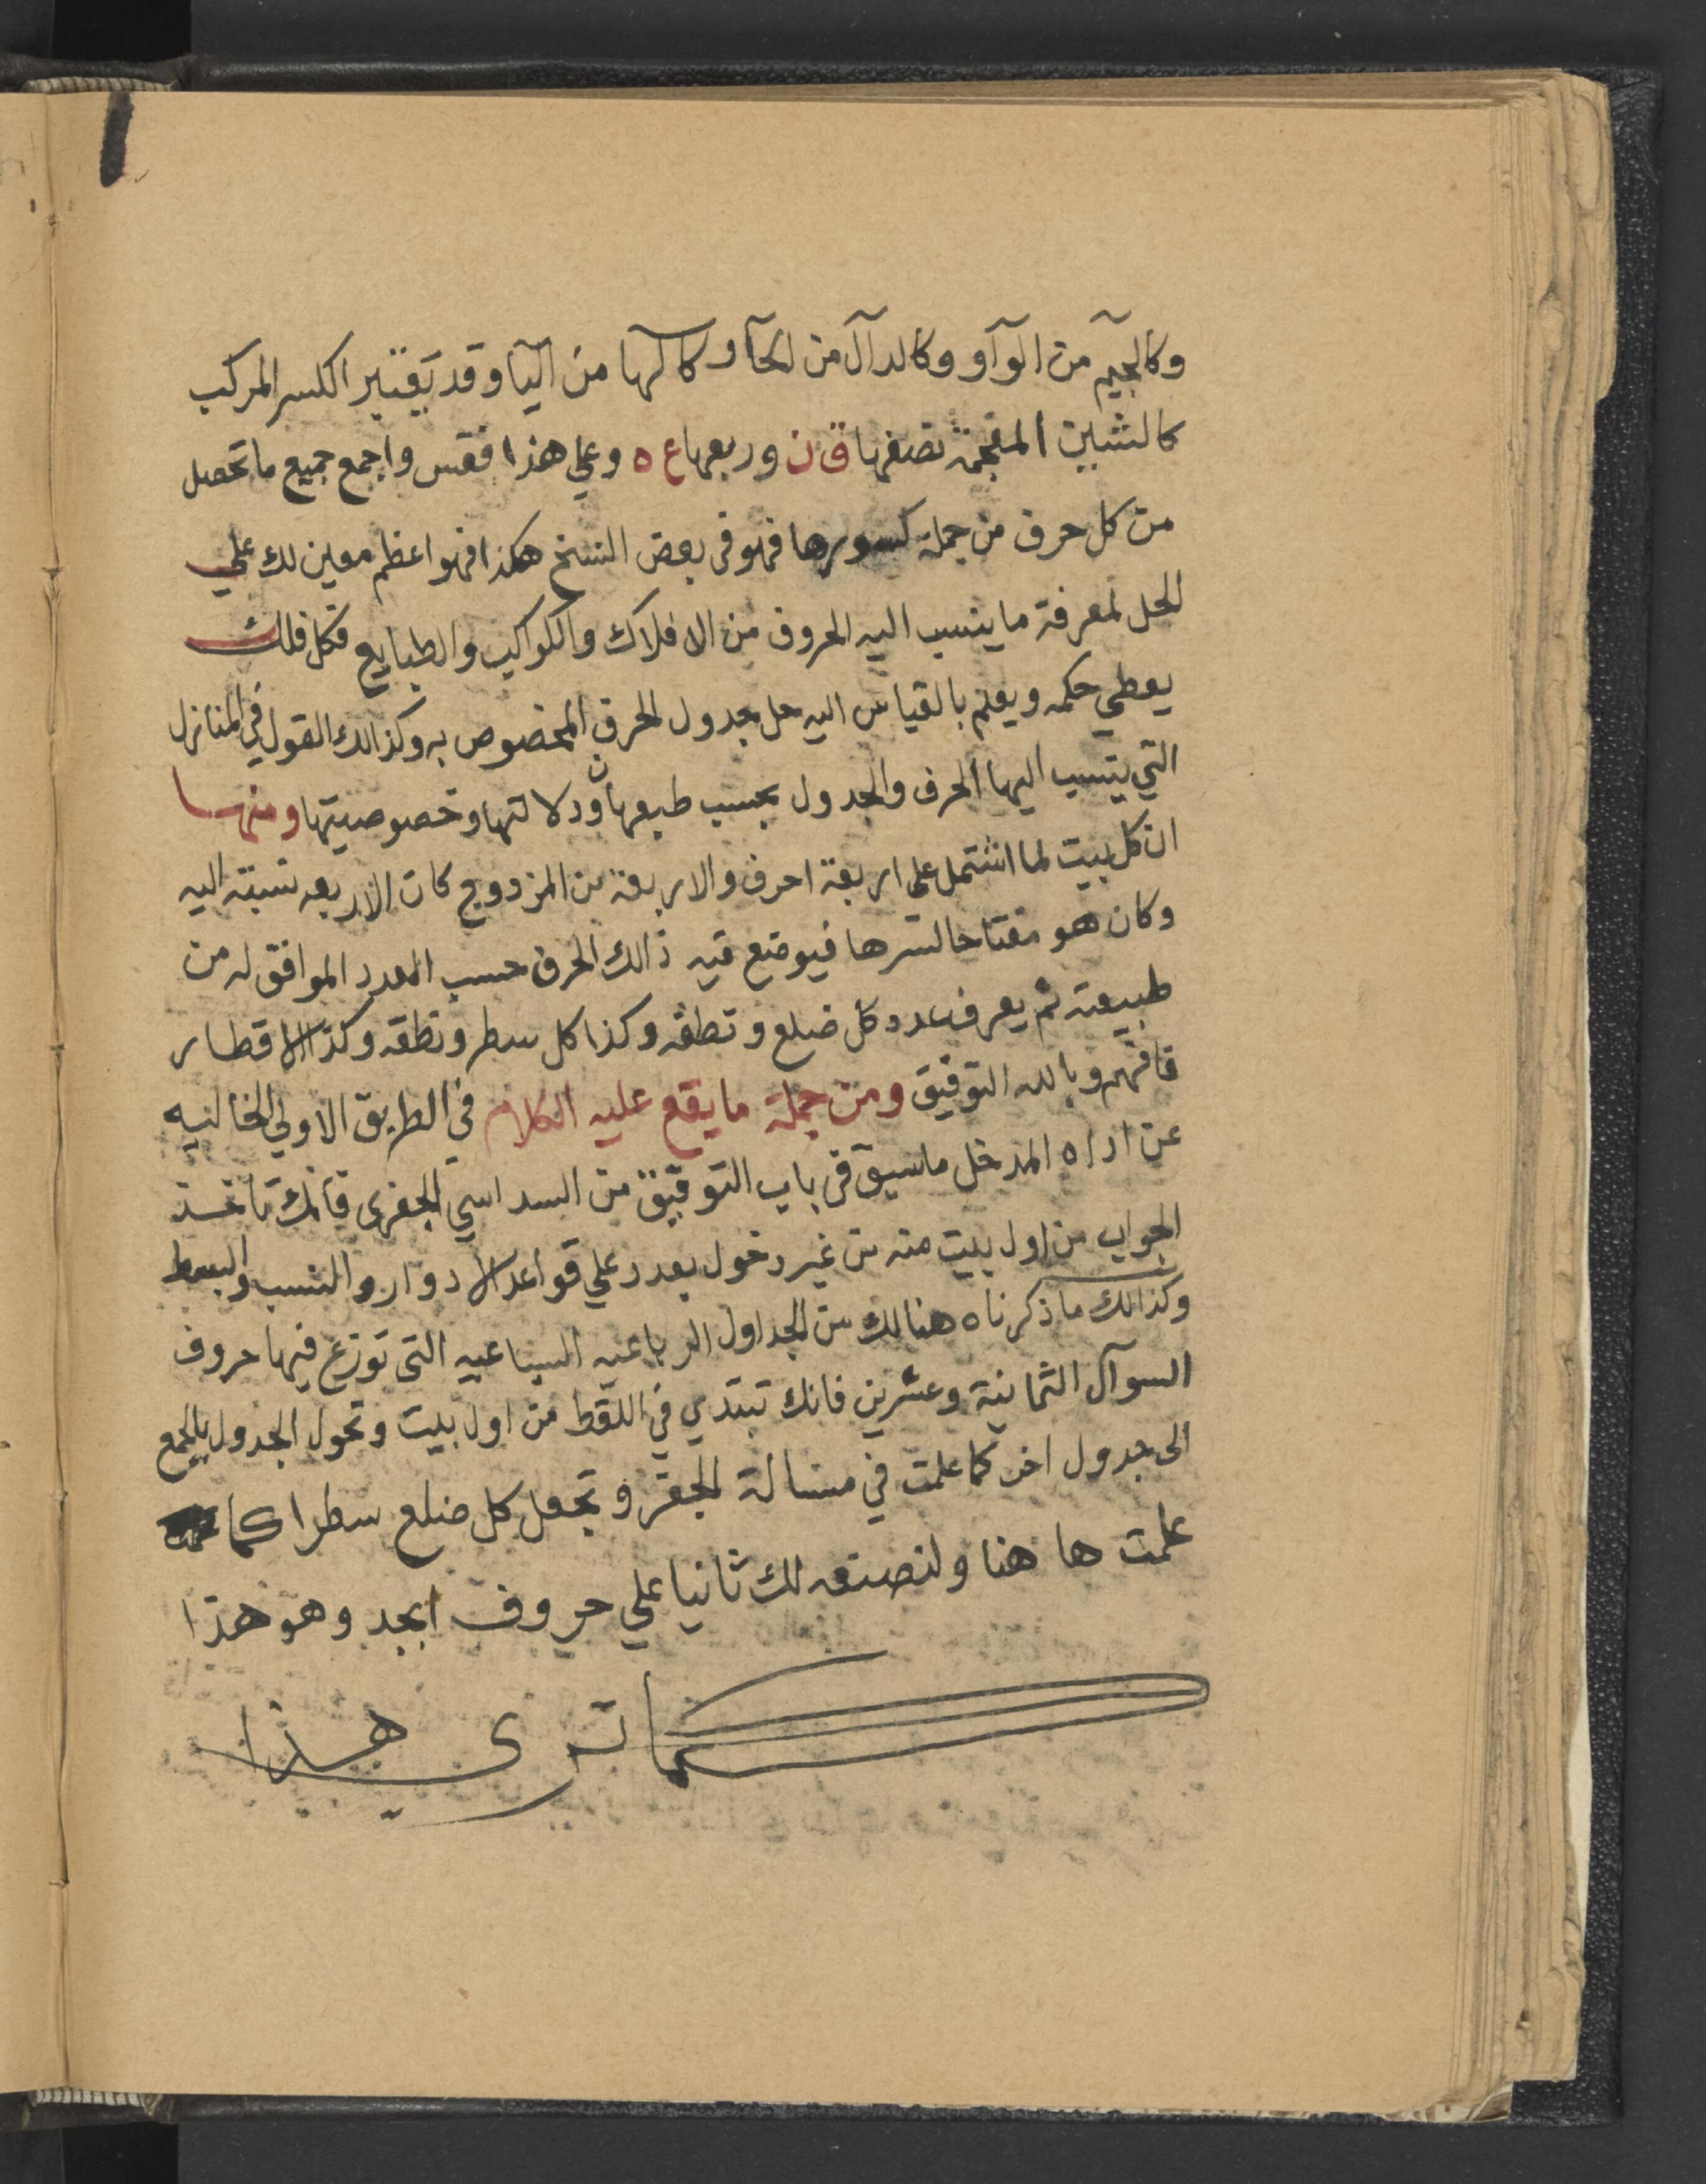 وكالجيم من الوآو وكالدآل من الحآ وكالها من اليا وقد يعتبر الكسر المركب
كالشين المعجمة نصفها ق ن وربعها ع ه وعلي هذا فقس واجمع جميع ما تحصل
من كل حرف من جملة كسورها فهو في بعض النسخ هكذا فهو اعظم معين لك علي
الحل لمعرفة ما ينسب اليه الحروف من الافلاك والكواكب والطبايع فكل فلك
يعطي حكمه ويعلم بالقياس اليه حل جدول الحرف المخصوص به وكذالك القول في المنازل
التي ينسب اليها الحرف والجدول بحسب طبعها ودلالتها وخصوصيتها ومنها
ان كل بيت لما اشتمل على اربعة احرف والاربعة من المزدوج كان الاربعه نسبته اليه
وكان هو مفتاحا لسرها فيوضع فيه ذالك الحرف حسب العدد الموافق له من
طبيعته ثم يعرف عدد كل ضلع ونطقه وكذا كل سطر ونطقه وكذا الاقطار
فافهم وبالله التوفيق ومن جملة ما يقع عليه الكلام في الطريق الاولي الخاليه
عن اداه المدخل ما سبق في باب التوفيق من السداسي الجفري فانك تاخذ
الجواب من اول بيت منه من غير دخول بعدد علي قواعد الادوار والنسب والبسط
وكذالك ما ذكرناه هنالك من الجداول الرباعيه السباعيه التي توزع فيها حروف
السوآل الثمانية وعشرين فانك تبتدي في اللقط من اول بيت وتحول الجدول بالجمع
الى جدول اخر كما علمت في مسالة الجفر وتجعل كل ضلع سطرا كما
علمت ها هنا ولنصنعه لك ثانيا علي حروف ابجد وهو هذا
كما ترى هذا